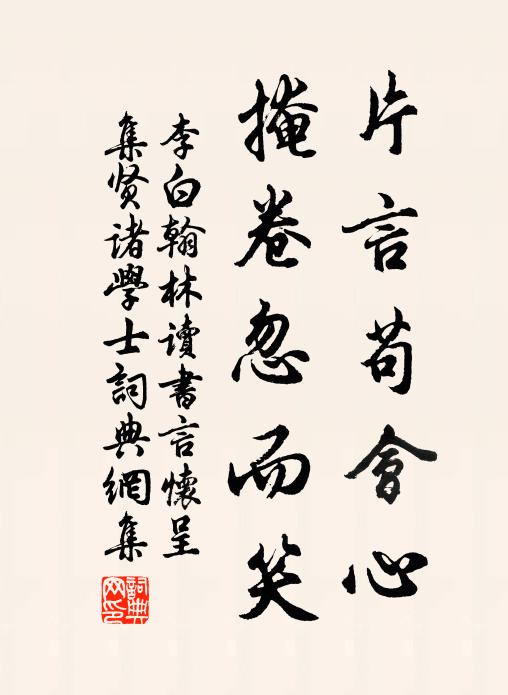 片言苟會心
掩卷忽而笑
李白翰林讀書言懷呈
集贤诸學士詞典網集
詞典網印